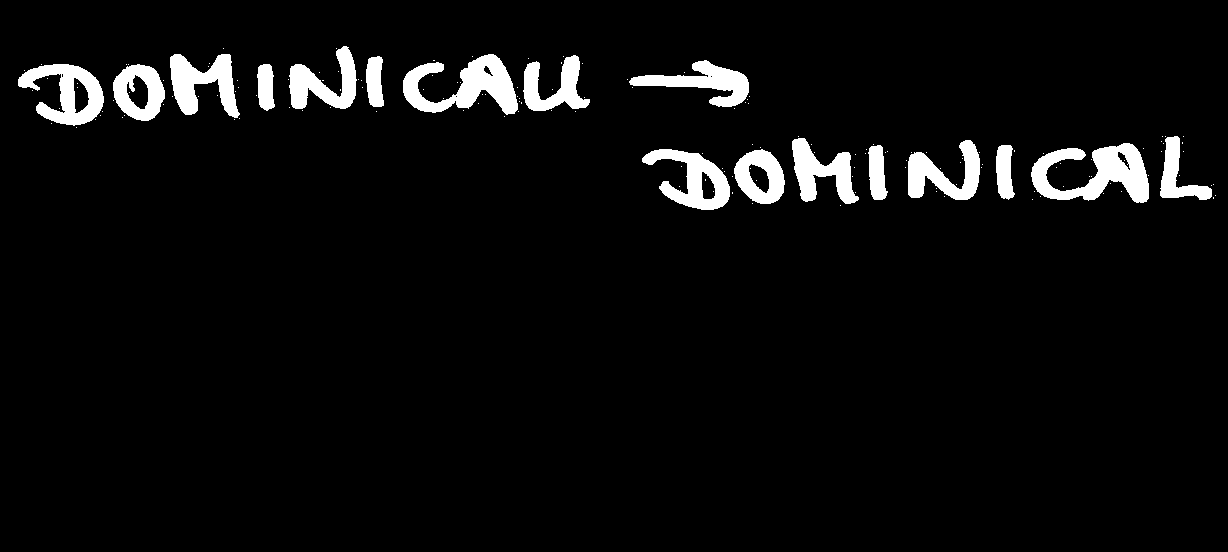 DOMINICAU →
DOMINICAL